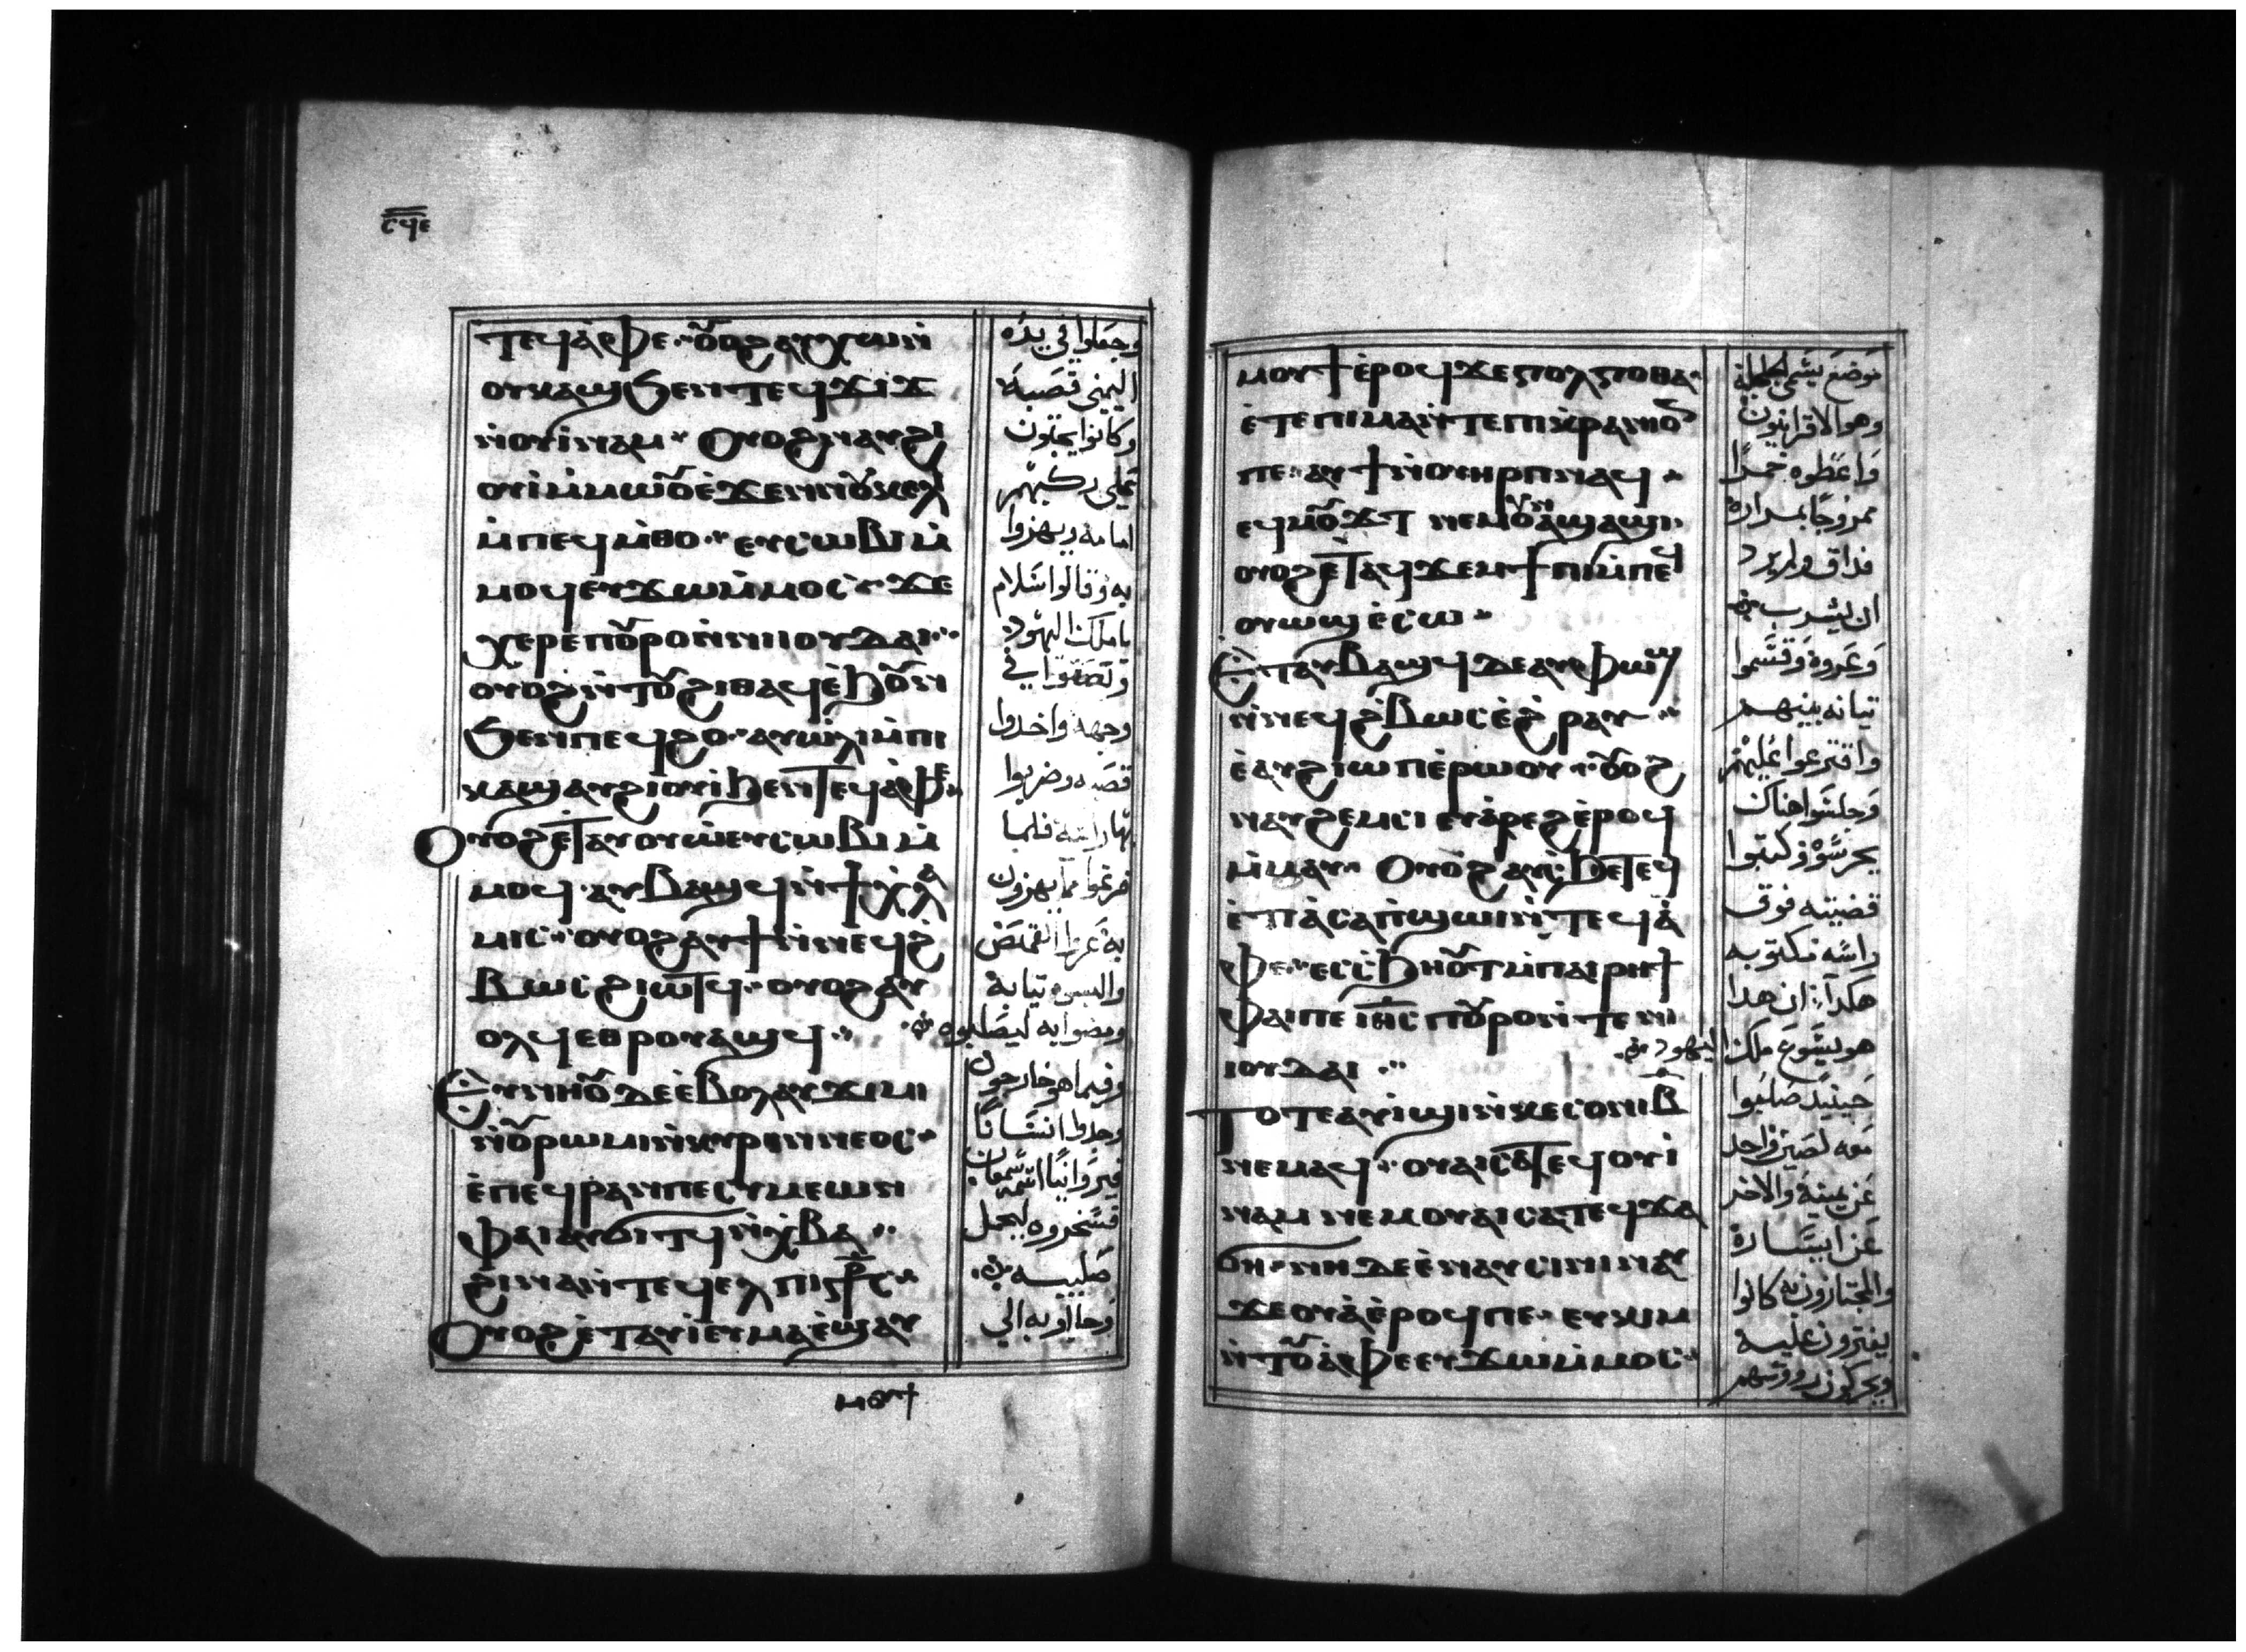 ⲥϥⲉ
ⲧⲉϥⲁ̀ⲫⲉ ⲟⲩⲟϩ ⲁⲩⲭⲱⲛⲓ
ⲟⲩⲕⲁϣ ϧⲉⲛ ⲧⲉϥϫⲓϫ
ⲛ̀ⲟⲩⲓ̀ⲛⲁⲙ ⲟⲩⲟϩ ⲛⲁⲩϩⲓ
ⲙ̀ⲡⲉϥⲙ̀ⲑⲟ ⲉⲩⲥⲱⲃⲓ ⲙ̀
ⲙⲟϥ ⲉⲩϫⲱ ⲙ̀ⲙⲟⲥ ϫⲉ
ⲭⲉⲣⲉ ⲡⲟⲩⲣⲟ ⲛ̀ⲛⲓⲓⲟⲩⲇⲁⲓ
ⲟⲩⲟϩ ⲛ̀ⲧⲟⲩϩⲓⲑⲁϥ ⲉ̀ϧⲟⲩⲛ
ϧⲉⲛ ⲡⲉϥϩⲟ ⲁⲩⲱ̀ⲗⲓ ⲙ̀ⲡⲓ
ⲕⲁϣ ⲁⲩϩⲓⲟⲩⲓ ϧⲉⲛ ⲧⲉϥⲁ̀ⲫⲉ
ⲟⲩⲟϩ ⲉⲧⲁⲩⲟⲩⲱ ⲉⲩⲥⲱⲃⲓ ⲙ̀
ⲙⲟϥ ⲁⲩⲃⲁϣϥ ⲛ̀ϯⲭⲗⲁ
ⲙⲓⲥ ⲟⲩⲟϩ ⲁⲩϯ ⲛ̀ⲛⲉϥϩ̀
ⲃⲱⲥ ϩⲓⲱⲧϥ ⲟⲩⲟϩ ⲁⲩ
ⲟⲗϥ ⲉⲑⲣⲟⲩⲁϣϥ
ⲉⲩⲛⲏⲟⲩ ⲇⲉ ⲉ̀ⲃⲟⲗ ⲁⲩϫⲓⲙⲓ
ⲛ̀ⲟⲩⲣⲱⲙⲓ ⲛ̀ⲕⲩⲣⲉⲛⲛⲉⲟⲥ
ⲉ̀ⲡⲉϥⲣⲁⲛ ⲡⲉ ⲥⲩⲙⲉⲱⲛ
ⲫⲁⲓ ⲁⲩϭⲓⲧϥ ⲛ̀ⲭ̀ⲃⲁ
ϩⲓⲛⲁ ⲛ̀ⲧⲉϥⲉⲗ ⲡⲓⲥⳁⲥ
ⲟⲩⲟϩ ⲉ̀ⲧⲁⲩⲓ̀ ⲉⲩⲙⲁ ⲉ̀ϣⲁⲩ
ⲙⲟⲩϯ
وجعلوا في يده
اليمنى قصبة
وكانوا يجثون
على ركبهم
امامه ويهزوا
به وقالوا سلام
يا ملك اليهود
وتصقوا في
وجهه واخدوا
قصبه وضربوا
بها راسه فلما
فرغوا مما يهزون
به عروا القمص
والبسوه ثيابه
ومضوا به ليصلبوه
وفيما هو خارجون
وجدوا انسانا
فسخروه ليحمل
صليبه
وجاؤ به الي
ⲙⲟⲩϯ ⲉ̀ⲣⲟϥ ϫⲉ ⲅⲟⲗⲅⲟⲑⲁ
ⲉ̀ⲧⲉ ⲡⲓⲙⲁ ⲛ̀ⲧⲉ ⲡⲓⲕ̀ⲣⲁⲛⲓⲟⲛ
ⲡⲉ ⲁⲩϯ ⲛ̀ⲟⲩⲏⲣⲡ ⲛⲁϥ
ⲉϥⲙⲟⲩϫⲧ ⲛⲉⲙ ⲟⲩⲛ̀ϣⲁϣⲓ
ⲟⲩⲟϩ ⲉⲧⲁϥϫⲉⲙϯⲡⲓ ⲙ̀ⲡⲉϥ
ⲟⲩⲱϣ ⲉ̀ⲥⲱ
ⲉ̀ⲧⲁⲩⲃⲁϣϥ ⲇⲉ ⲁⲩⲫⲱϣ
ⲛ̀ⲛⲉϥϩ̀ⲃⲱⲥ ⲉ̀ϩ̀ⲣⲁⲩ
ⲉ̀ⲁⲩϩⲓⲱⲡ ⲉ̀ⲣⲱⲟⲩ ⲟⲩⲟϩ
ⲛⲁⲩϩⲉⲙⲥⲓ ⲉⲩⲁ̀ⲣⲉϩ ⲉ̀ⲣⲟϥ
ⲙ̀ⲙⲁⲩ ⲟⲩⲟϩ ⲁⲩⲥ̀ϧⲉ ⲧⲉϥ
ⲉ̀ⲧⲓⲁ̀ ⲥⲁⲡ̀ϣⲱⲓ ⲛ̀ⲧⲉϥⲁ̀
ⲫⲉ ⲉⲥⲥ̀ϧⲏⲟⲩⲧ ⲙ̀ⲡⲁⲓⲣⲏϯ
ⲫⲁⲓ ⲡⲉ ⲓⲏⲥ ⲡⲟⲩⲣⲟ ⲛ̀ⲧⲉ ⲛⲓ
ⲓⲟⲩⲇⲁⲓ
ⲧⲟⲧⲉ ⲁⲩⲓ̀ϣⲓ ⲛ̀ⲕⲉⲥⲟⲛⲓ ⲃ̅
ⲛⲉⲙⲁϥ ⲟⲩⲁⲓ ⲥⲁⲧⲉϥⲟⲩⲓ̀
ⲛⲁⲙ ⲛⲉⲙ ⲟⲩⲁⲓ ⲥⲁⲧⲉϥϫⲁ
ϭⲏ ⲛⲏ ⲇⲉ ⲉ̀ⲛⲁⲩⲥⲓⲛⲓ ⲛⲁⲩ
ϫⲉⲟⲩⲁ̀ ⲉ̀ⲣⲟϥ ⲡⲉ ⲉⲩⲕⲓⲙ
ⲛ̀ⲧⲟⲩⲁ̀ⲫⲉ ⲉⲩϫⲱ ⲙ̀ⲙⲟⲥ
وهو الاقرانيون
واعطوه خمرا
ممزوجا بمرارة
فداق ولم يرد
ان يشرب
وعروه وقسموا
ثيابه بينهم
واقترعوا عليهم
وجلسوا هناك
يحرسوه وكتبوا
قضيته فوق
راسه مكتوبه
هكذا ان هدا
هو يسوع ملك اليهود
حينيد صلبوا
معه لصين واحد
عن يمينه والاخر
عن ايساره
والمجتازون به كانوا
يفترون عليه
ويحركون رووسهم